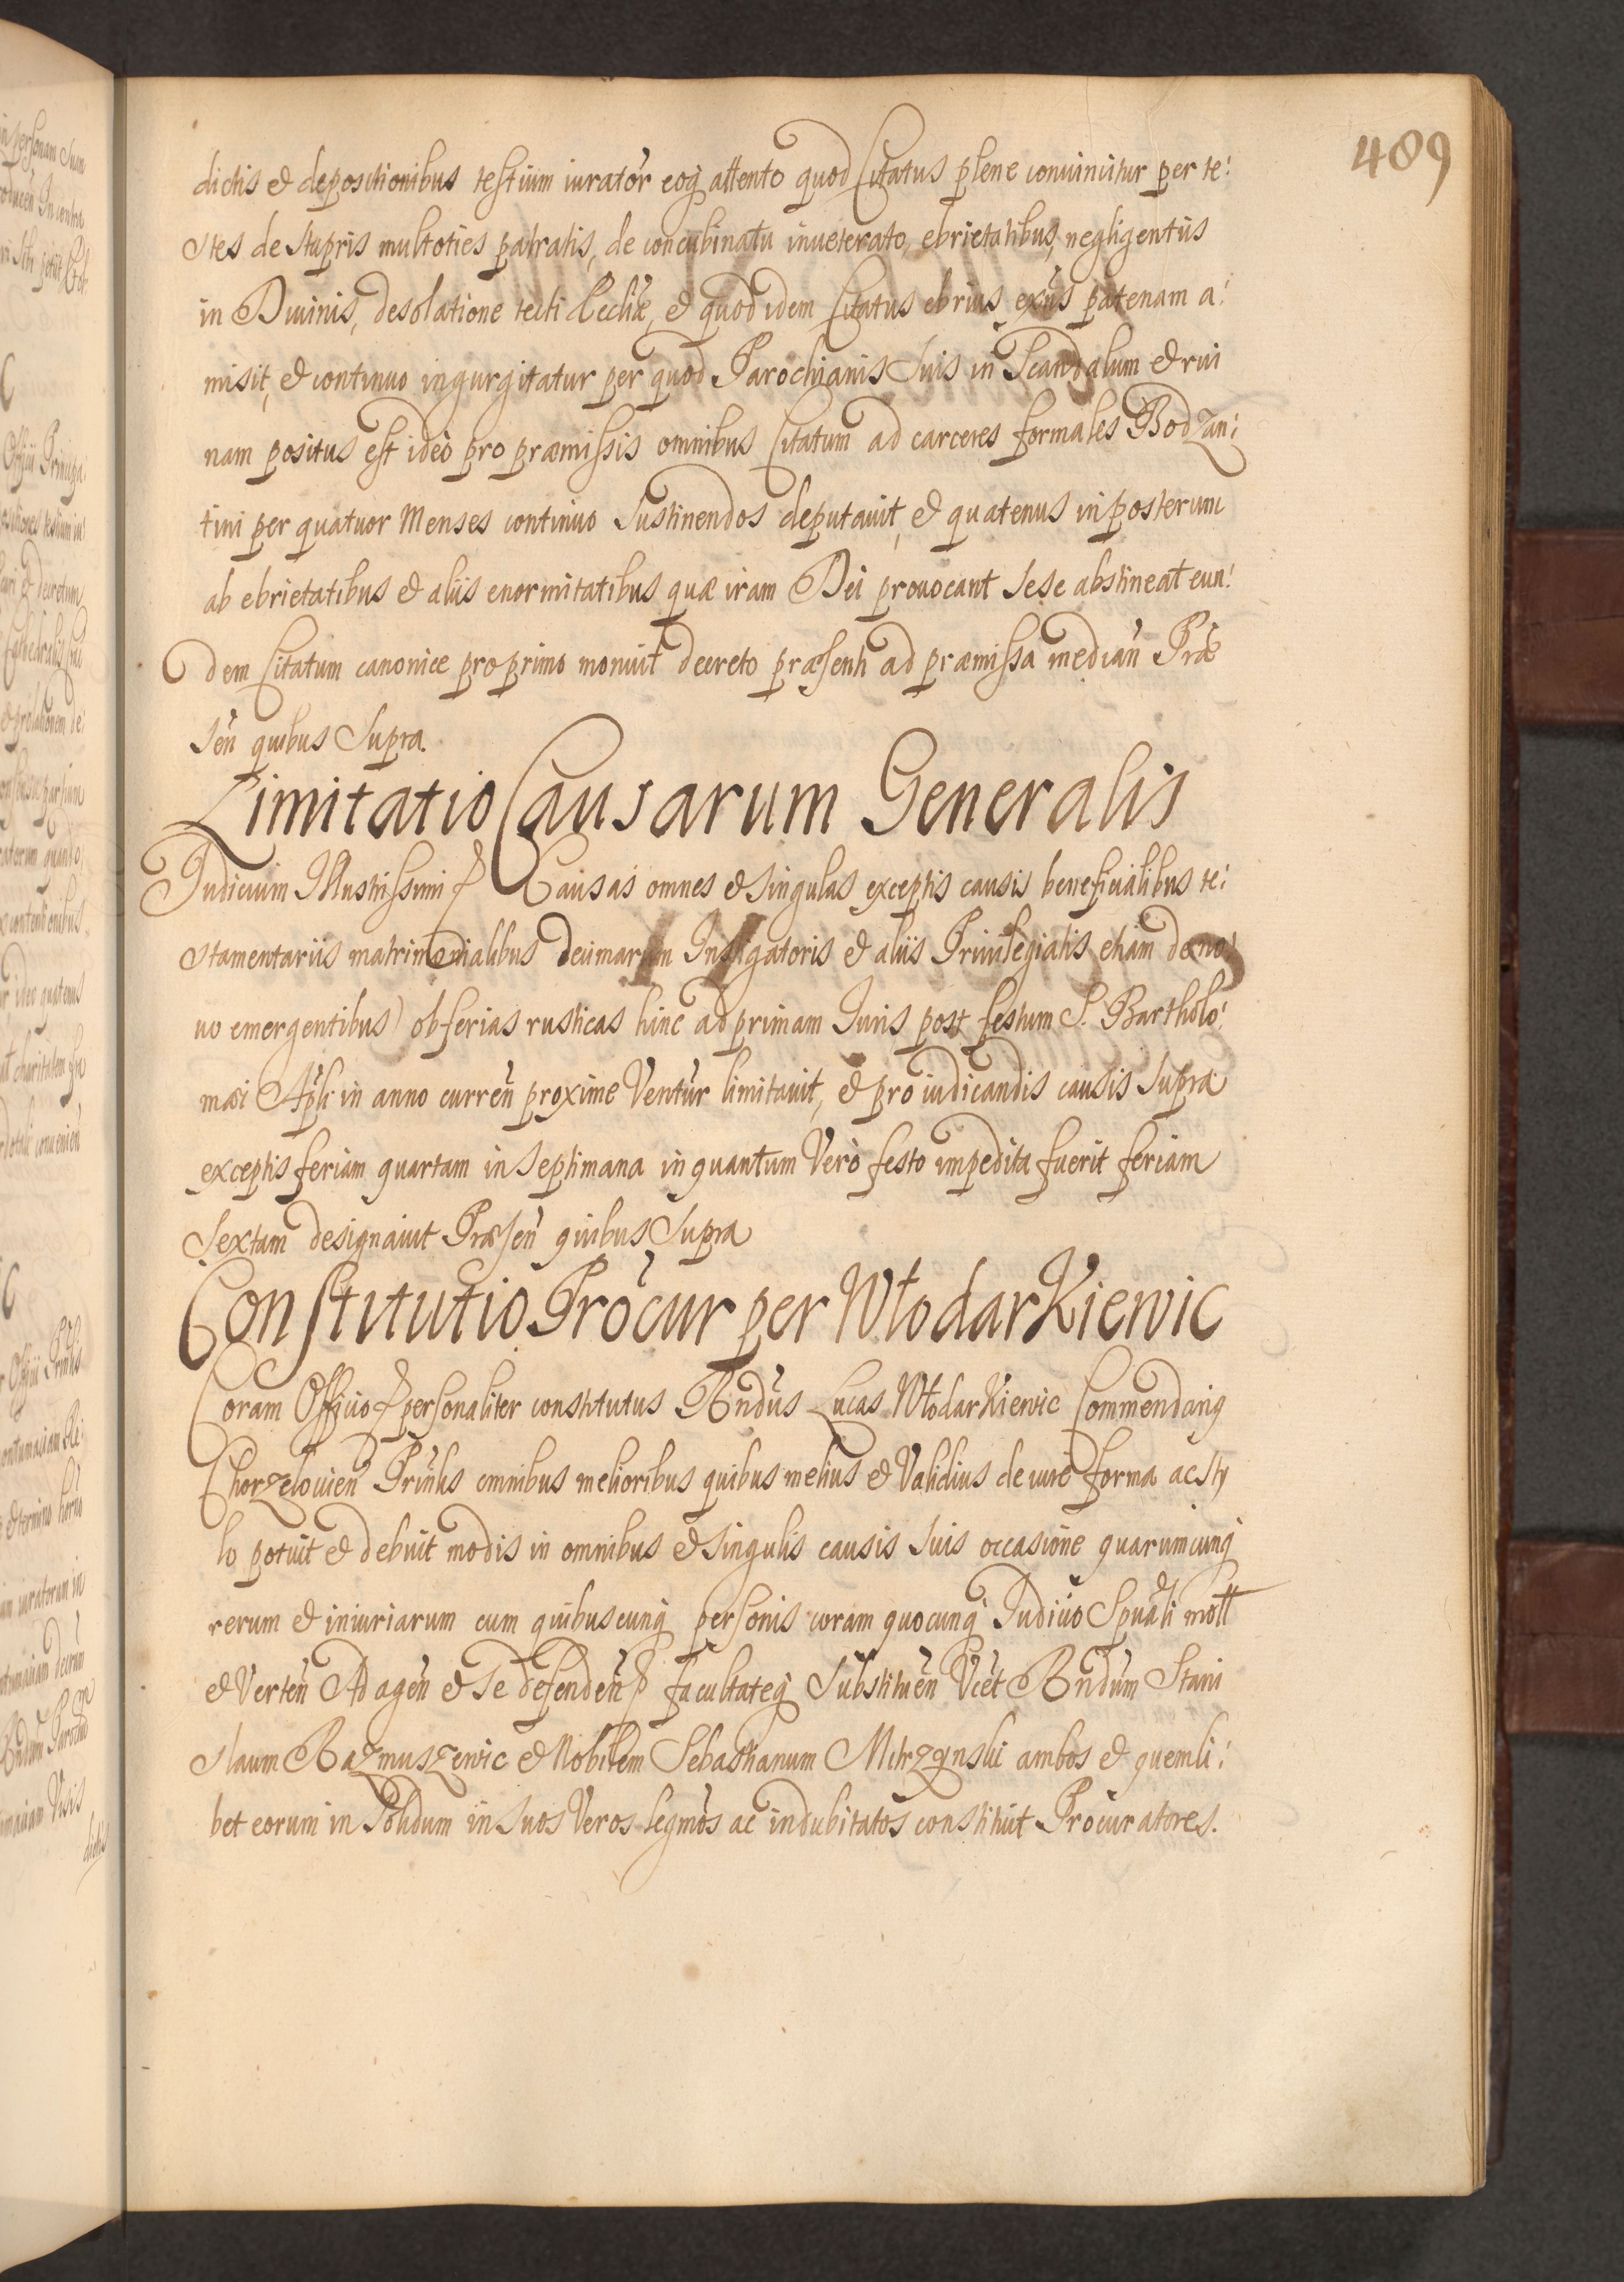 489
dictis et depositionibus testium iurator eoq attento quod Citatus plene convincitur per te:
stes de stupris multoties patratis, de concubinatu inueterato, ebrietatibus, negligentiis
in Diuinis, desolatione tecti Eccliæ, et quod idem Citatus ebrius exñs patenam a:
misit, et continuo ingurgitatur per quod Parochianis suis in Scandalum et rui
nam positus est ideo pro præmissis omnibus Citatum ad carceres formales Bodzan:
tini per quatuor Menses continuo sustinendos deputauit, et quatenus in posterum
ab ebrietatibus et aliis enormitatibus quæ iram Dei prouocant sese abstineat eun:
dem Citatum canonice pro primo monuit decreto præsenti ad præmissa median Præ
sen quibus supra.
Limitatio Causarum Generalis
Iudicium Illustrissimi Causas omnes et singulas exceptis causis beneficialibus te:
stamentariis matrimonialibus decimarum Instigatoris et aliis Priuilegiatis etiam de no:
uo emergentibus) ob ferias rusticas hinc ad primam Iuris post festum S. Bartholo:
mæi Apli in anno curren proxime Ventur limitauit, et pro iudicandis causis supra
exceptis feriam quartam in septimana in quantum Vero festo impedita fuerit feriam
Sextam designauit Præsen quibus supra
Constitutio Procur per Włodarkiewic
Coram Officio personaliter constitutus Rndus Lucas Włodarkiewic Commendariq
Chorzelouien Prinlis omnibus melioribus quibus melius et Validius de iure forma ac sty
lo potuit et debuit modis in omnibus et singulis causis suis occasione quarumcunq
rerum et iniuriarum cum quibuscunq personis coram quocunq Iudicio Spuali mott
et Verten Ad agen et se defenden facultateq substituen Vcet Rndum Stani
slaum Razmuszewic et Nobilem Sebastianum Mitrzynski ambos et quemli:
bet eorum in solidum in suos Veros legmos ac indubitatos constituit Procuratores.